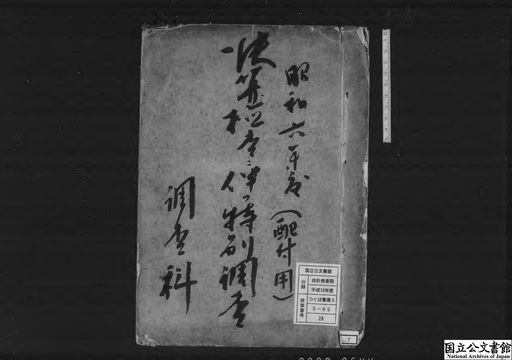 昭和六年度(配付用)
一、決算検査ニ伴フ特別調査
調査科
国立公文書館
分類
会計検査院
平成14年度
つくば書庫5
5-65
28
国立公文書館
National Archives of Japan